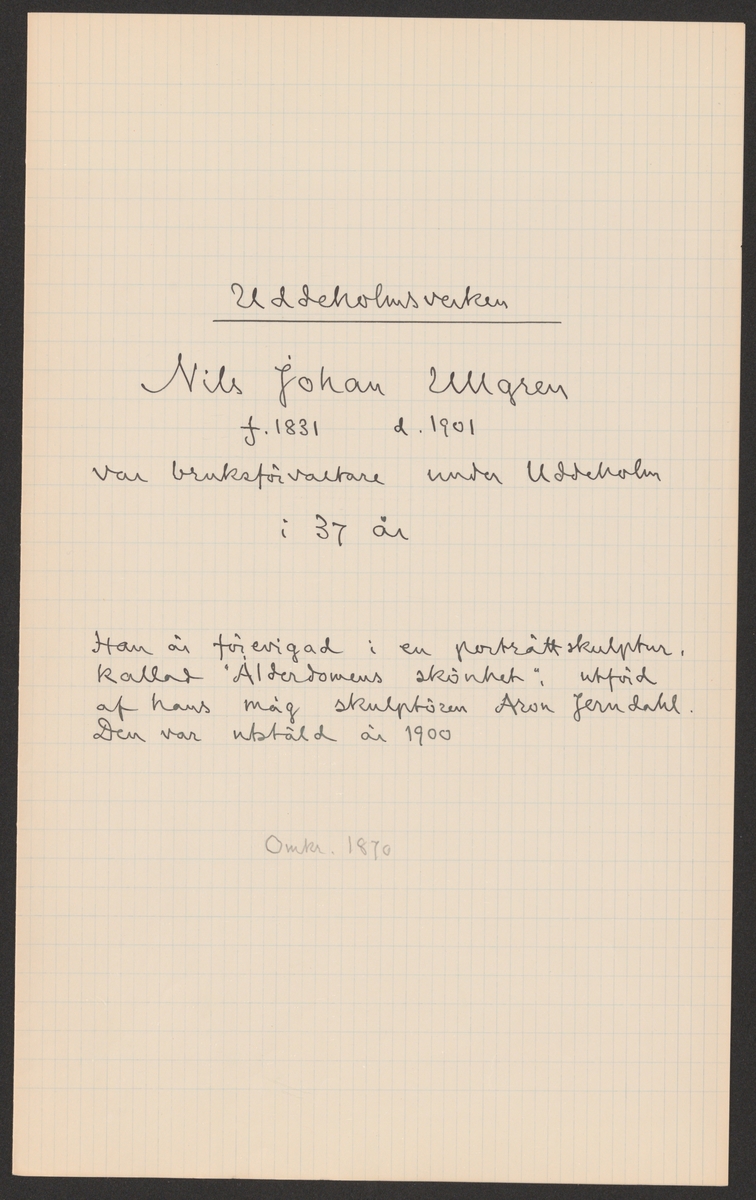 Uddeholmsverken
Nils Johan Ullgren
f. 1831 d. 1901
var bruksförvaltare under Uddeholm
i 37 år
Han är förevigad i en porträttskulptur,
kallad "Ålderdomens skönhet", utförd
af hans måg skulptören Aron Jerndahl.
Den var utstäld år 1900
Omkr. 1870